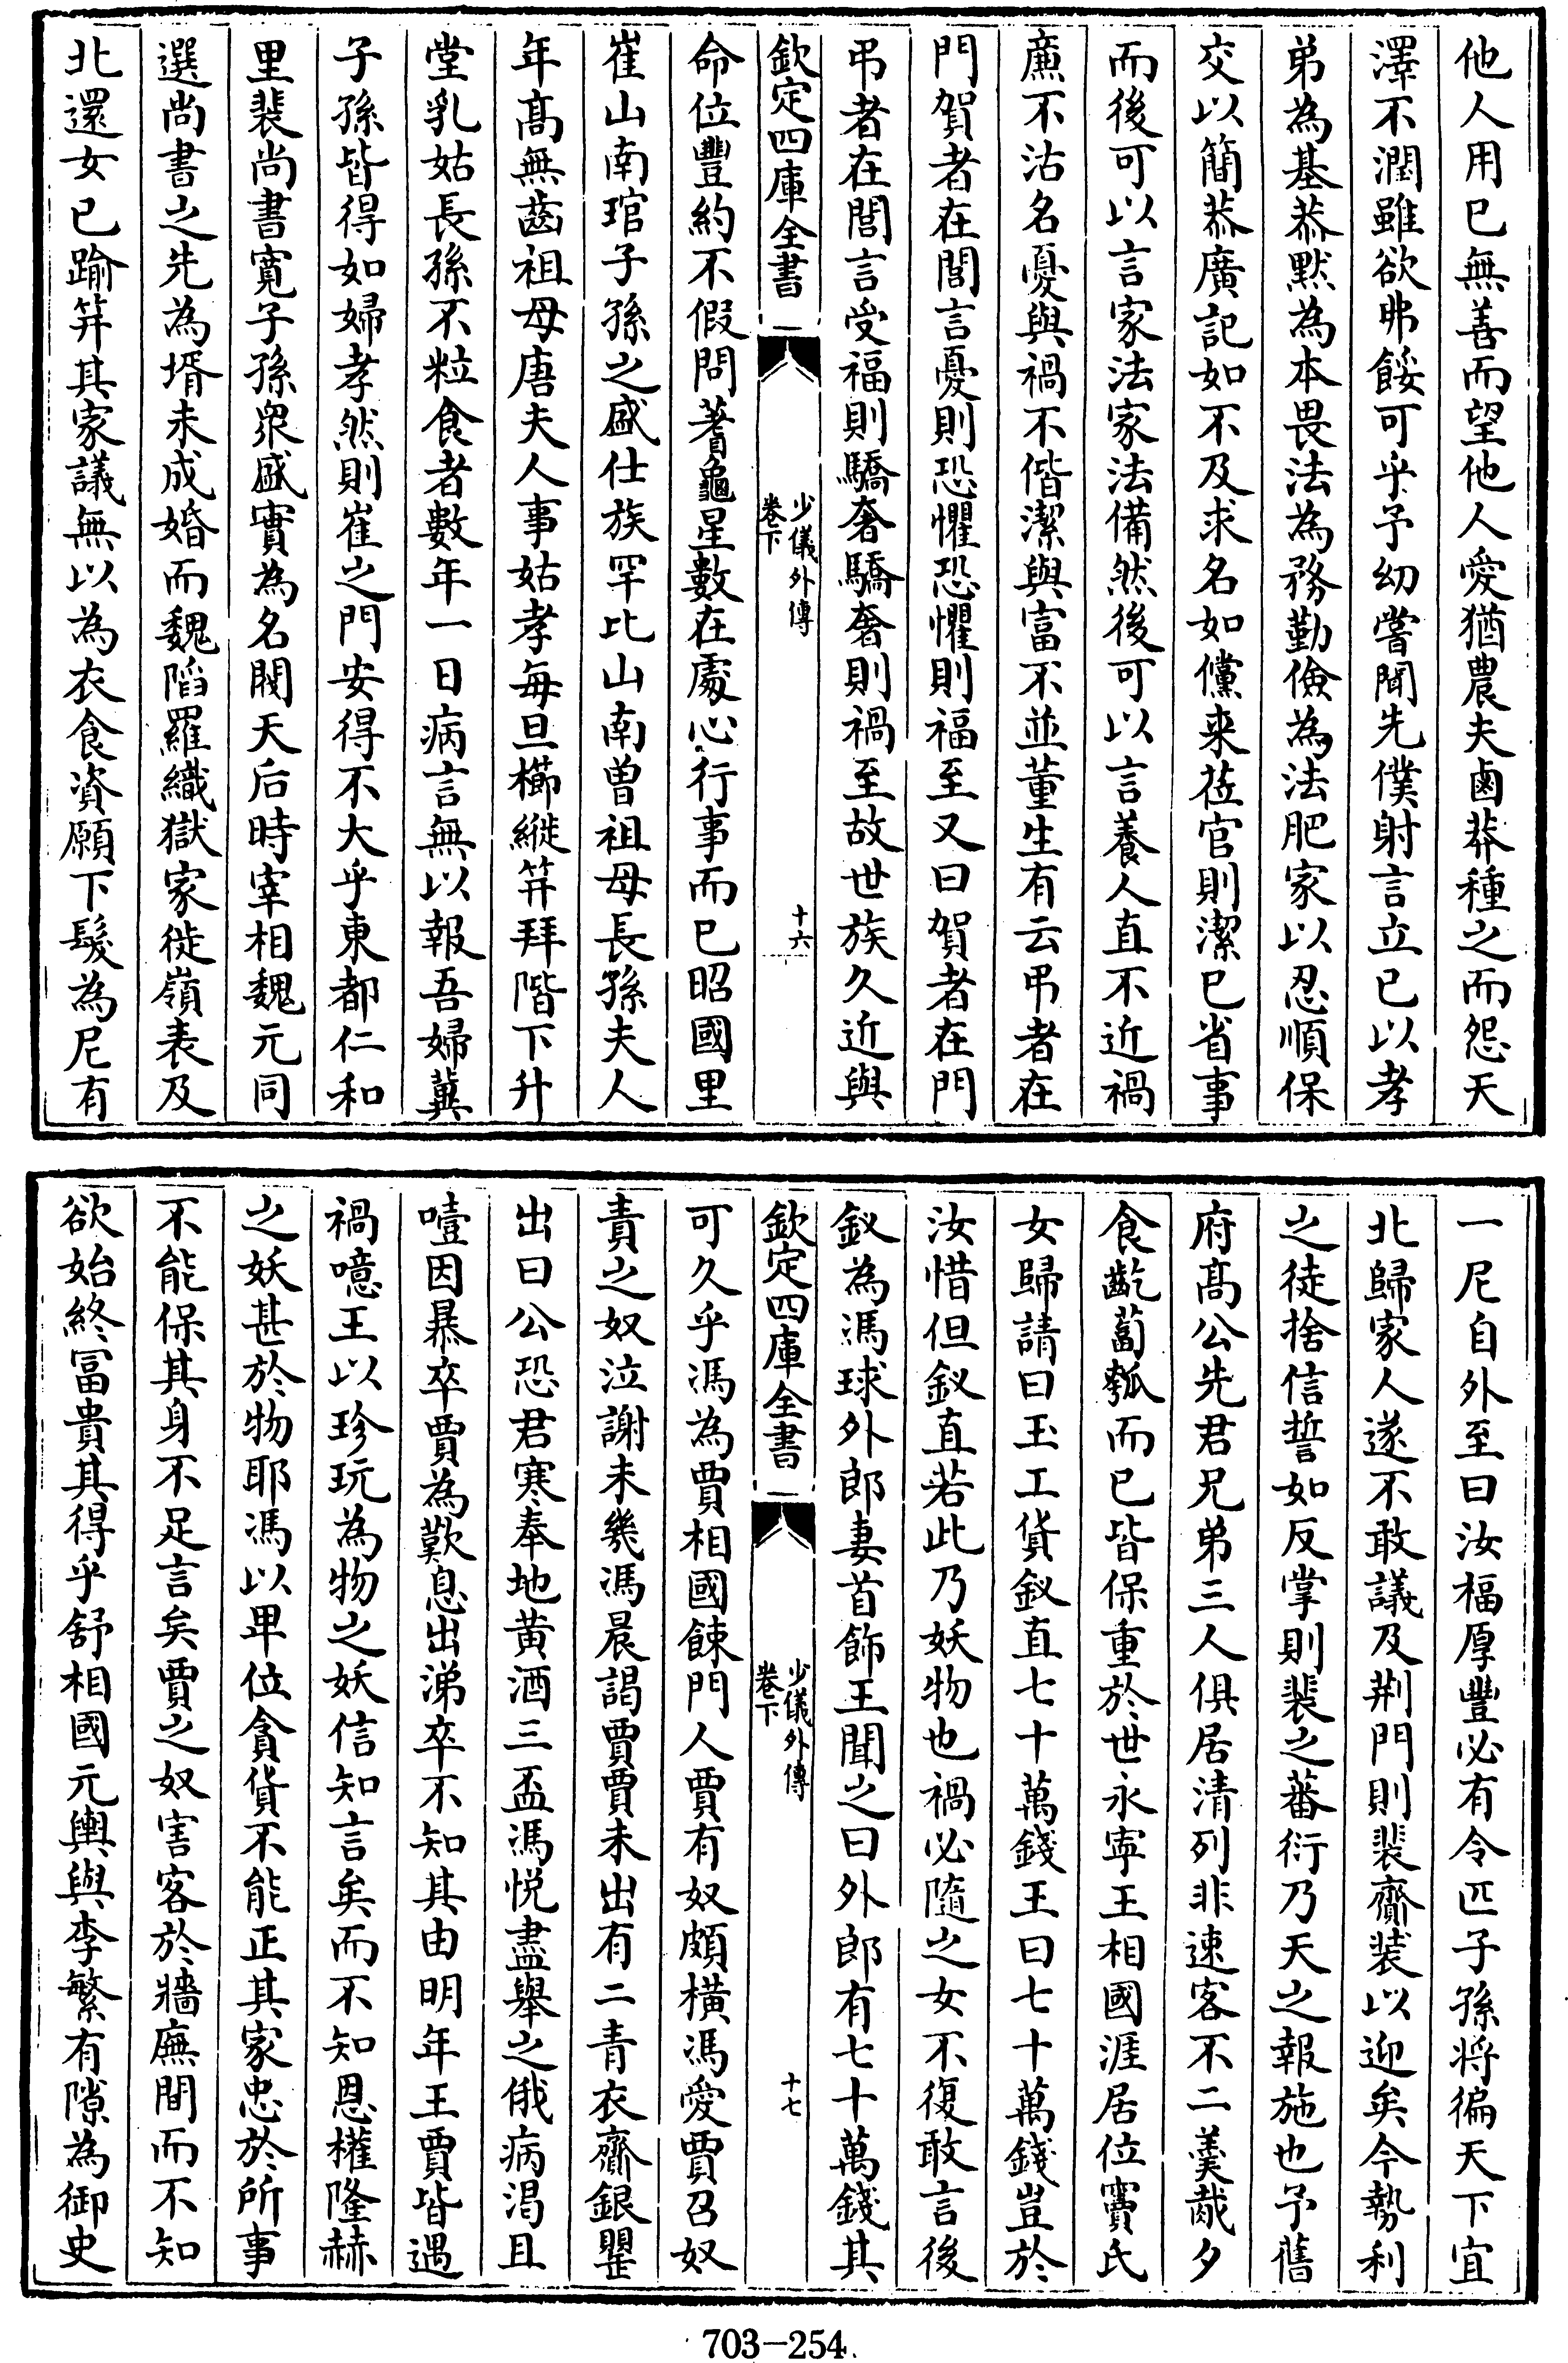 他人用已無善而望他人愛猶農夫鹵莽種之而怨天
澤不潤雖欲弗餒可乎予幼嘗聞先僕射言立已以孝
弟為基恭黙為本畏法為務勤儉為法肥家以忍順保
交以簡恭廣記如不及求名如儻来莅官則潔已省事
而後可以言家法家法備然後可以言養人直不近禍
廉不沽名憂與禍不偕潔與富不並董生有云弔者在
門賀者在閭言憂則恐懼恐懼則福至又曰賀者在門
弔者在閭言受福則驕奢驕奢則禍至故世族久近與
欽定四庫全書
少儀外傳
卷下
十六
命位豐約不假問蓍龜星數在處心行事而已昭國里
崔山南琯子孫之盛仕族罕比山南曽祖母長孫夫人
年髙無齒祖母唐夫人事姑孝每旦櫛縰笄拜階下升
堂乳姑長孫不粒食者數年一日病言無以報吾婦冀
子孫皆得如婦孝然則崔之門安得不大乎東都仁和
里裴尚書寛子孫衆盛實為名閥天后時宰相魏元同
選尚書之先為壻未成婚而魏䧟羅織獄家徙嶺表及
北還女已踰笄其家議無以為衣食資願下髮為尼有
一尼自外至曰汝福厚豐必有令匹子孫将徧天下宜
北歸家人遂不敢議及荆門則裴齎装以迎矣今勢利
之徒捨信誓如反掌則裴之蕃衍乃天之報施也予舊
府髙公先君兄弟三人俱居清列非速客不二羮胾夕
食齕蔔瓠而已皆保重於世永寧王相國涯居位竇氏
女歸請曰玉工貨釵直七十萬錢王曰七十萬錢豈於
汝惜但釵直若此乃妖物也禍必隨之女不復敢言後
釵為馮球外郎妻首飾王聞之曰外郎有七十萬錢其
欽定四庫全書
少儀外傳
卷下
十七
可久乎馮為賈相國餗門人賈有奴頗横馮愛賈召奴
責之奴泣謝未幾馮晨謁賈賈未出有二青衣齎銀罌
出曰公恐君寒奉地黄酒三盃馮悦盡舉之俄病渇且
噎因暴卒賈為歎息出涕卒不知其由明年王賈皆遇
禍噫王以珍玩為物之妖信知言矣而不知恩權隆赫
之妖甚於物耶馮以卑位貪貨不能正其家忠於所事
不能保其身不足言矣賈之奴害客於牆廡間而不知
欲始終富貴其得乎舒相國元輿與李繁有隙為御史
703-254